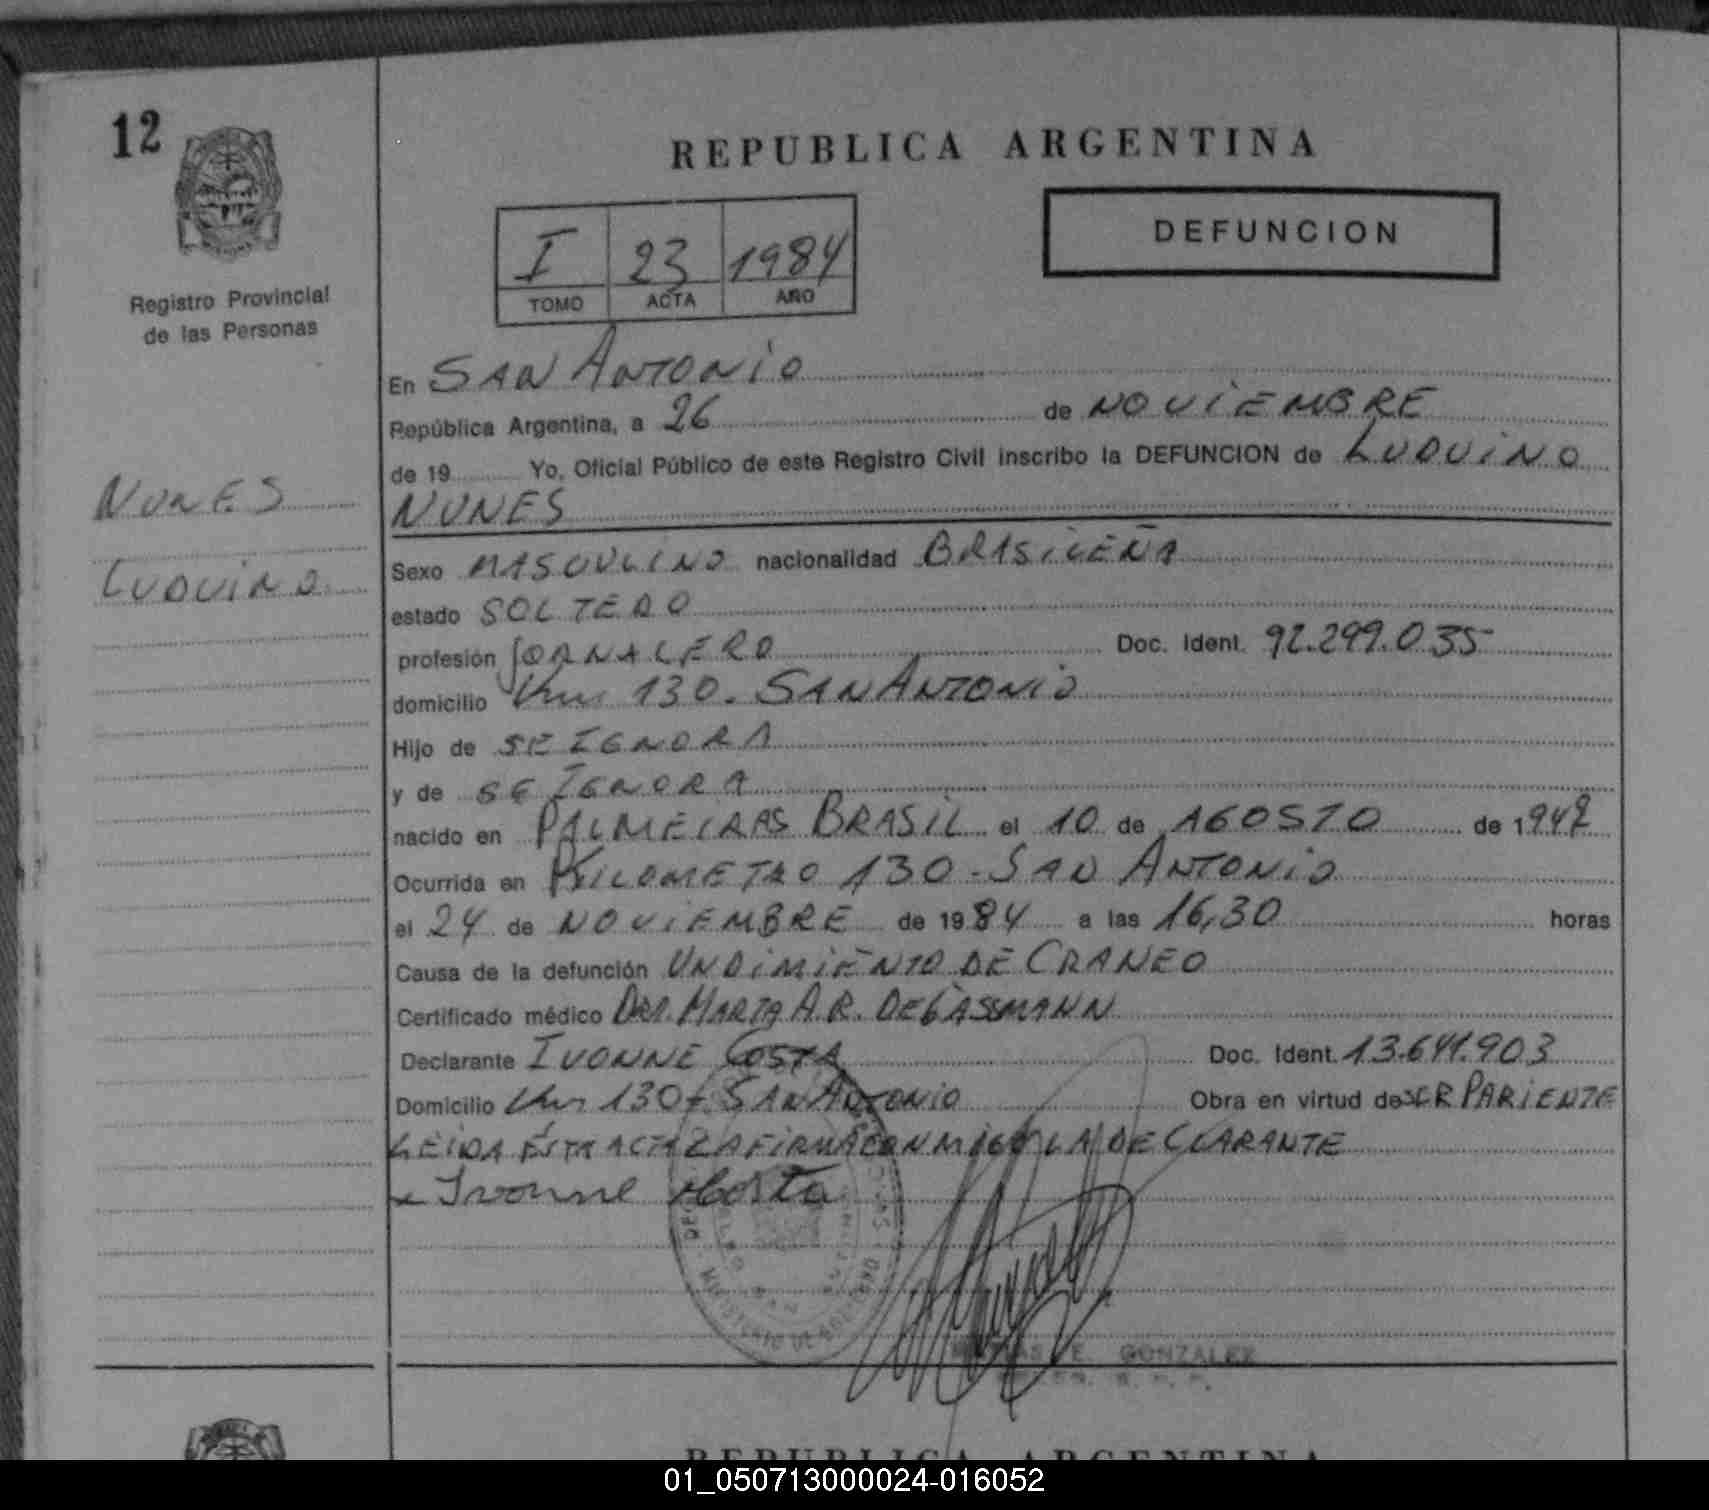 12
REPUBLICA ARGENTINA
DEFUNCION
I 23 1984
TOMO ACTA AÑO
Registro Provincial
de las Personas
NUNES
LUDUINO
En SAN ANTONIO
República Argentina, a 26 de NOVIEMBRE
de 19 Yo, Oficial Público de este Registro Civil inscribo la DEFUNCION de LUDUINO
NUNES
Sexo MASCULINO nacionalidad BRASILEÑA
estado SOLTERO
profesión JORNALERO Doc. Ident. 92.299.035
domicilio Km 130 - SAN ANTONIO
Hijo de SE IGNORA
y de SE IGNORA
nacido en PALMEIRAS BRASIL el 10 de AGOSTO de 194
Ocurrida en KILOMETRO 130 - SAN ANTONIO
el 24 de NOVIEMBRE de 1984 a las 16,30 horas
Causa de la defunción UNDIMIENTO DE CRANEO
Certificado médico DRA. MARTA A.R. DE GASSMANN
Declarante IVONNE COSTA Doc. Ident. 13.641.903
Domicilio Km 130 - SAN ANTONIO Obra en virtud de SER PARIENTE
LEIDA ÉSTA ACTA LA FIRMA CON MIGO LA DECLARANTE
Ivonne Costa
MINISTERIO DE GOBIERNO
E. GONZALEZ
REPUBLICA ARGENTINA
01_050713000024-016052